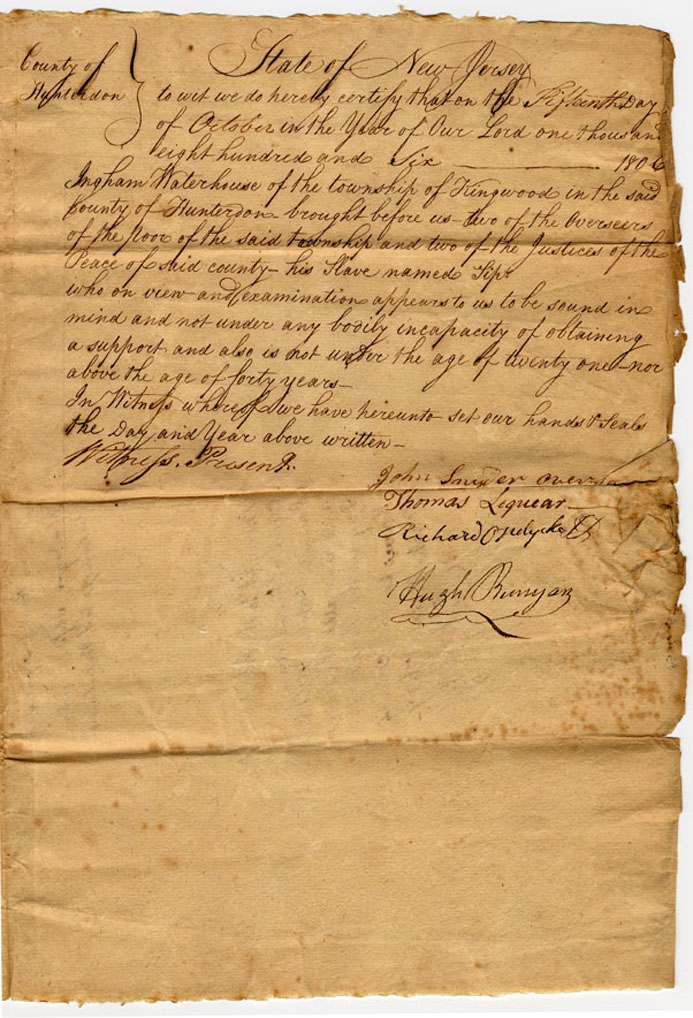 State of New Jersey
County of
Hunterdon
to wit we do hereby certify that on the Fifteenth Day
of October in the Year of Our Lord one thousand
eight hundred and Six 1806
Ingham Waterhouse of the township of Kingwood in the said
County of Hunterdon brought before us two of the Overseers
of the poor of the said township and two of the Justices of the
Peace of said county his Slave named
who on view and examination appears to us to be sound in
mind and not under any bodily incapacity of obtaining
a support and also is not under the age of twenty one nor
above the age of forty years
In Witness whereof we have hereunto set our hands & Seals
the Day and Year above written
Witness. Present.
John Snyder
Thomas Lequear
Richard Opdycke
Hugh Runyan